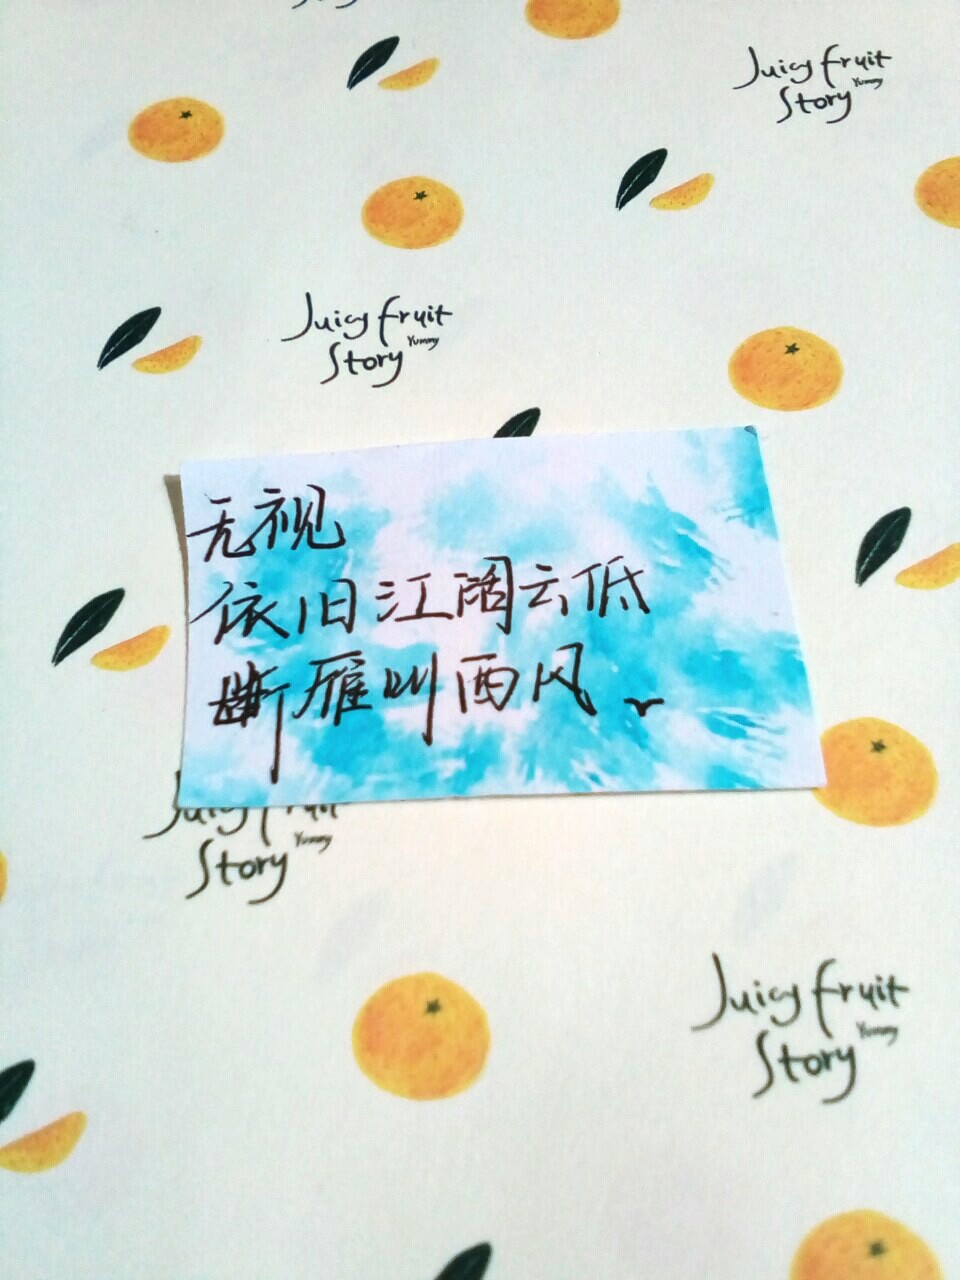 Juicy fruit
Story Yummy
Juicy fruit
Story Yummy
无视
依旧江阔云低
断雁叫西风
Juicy fruit
Story Yummy
Juicy fruit
Story Yummy